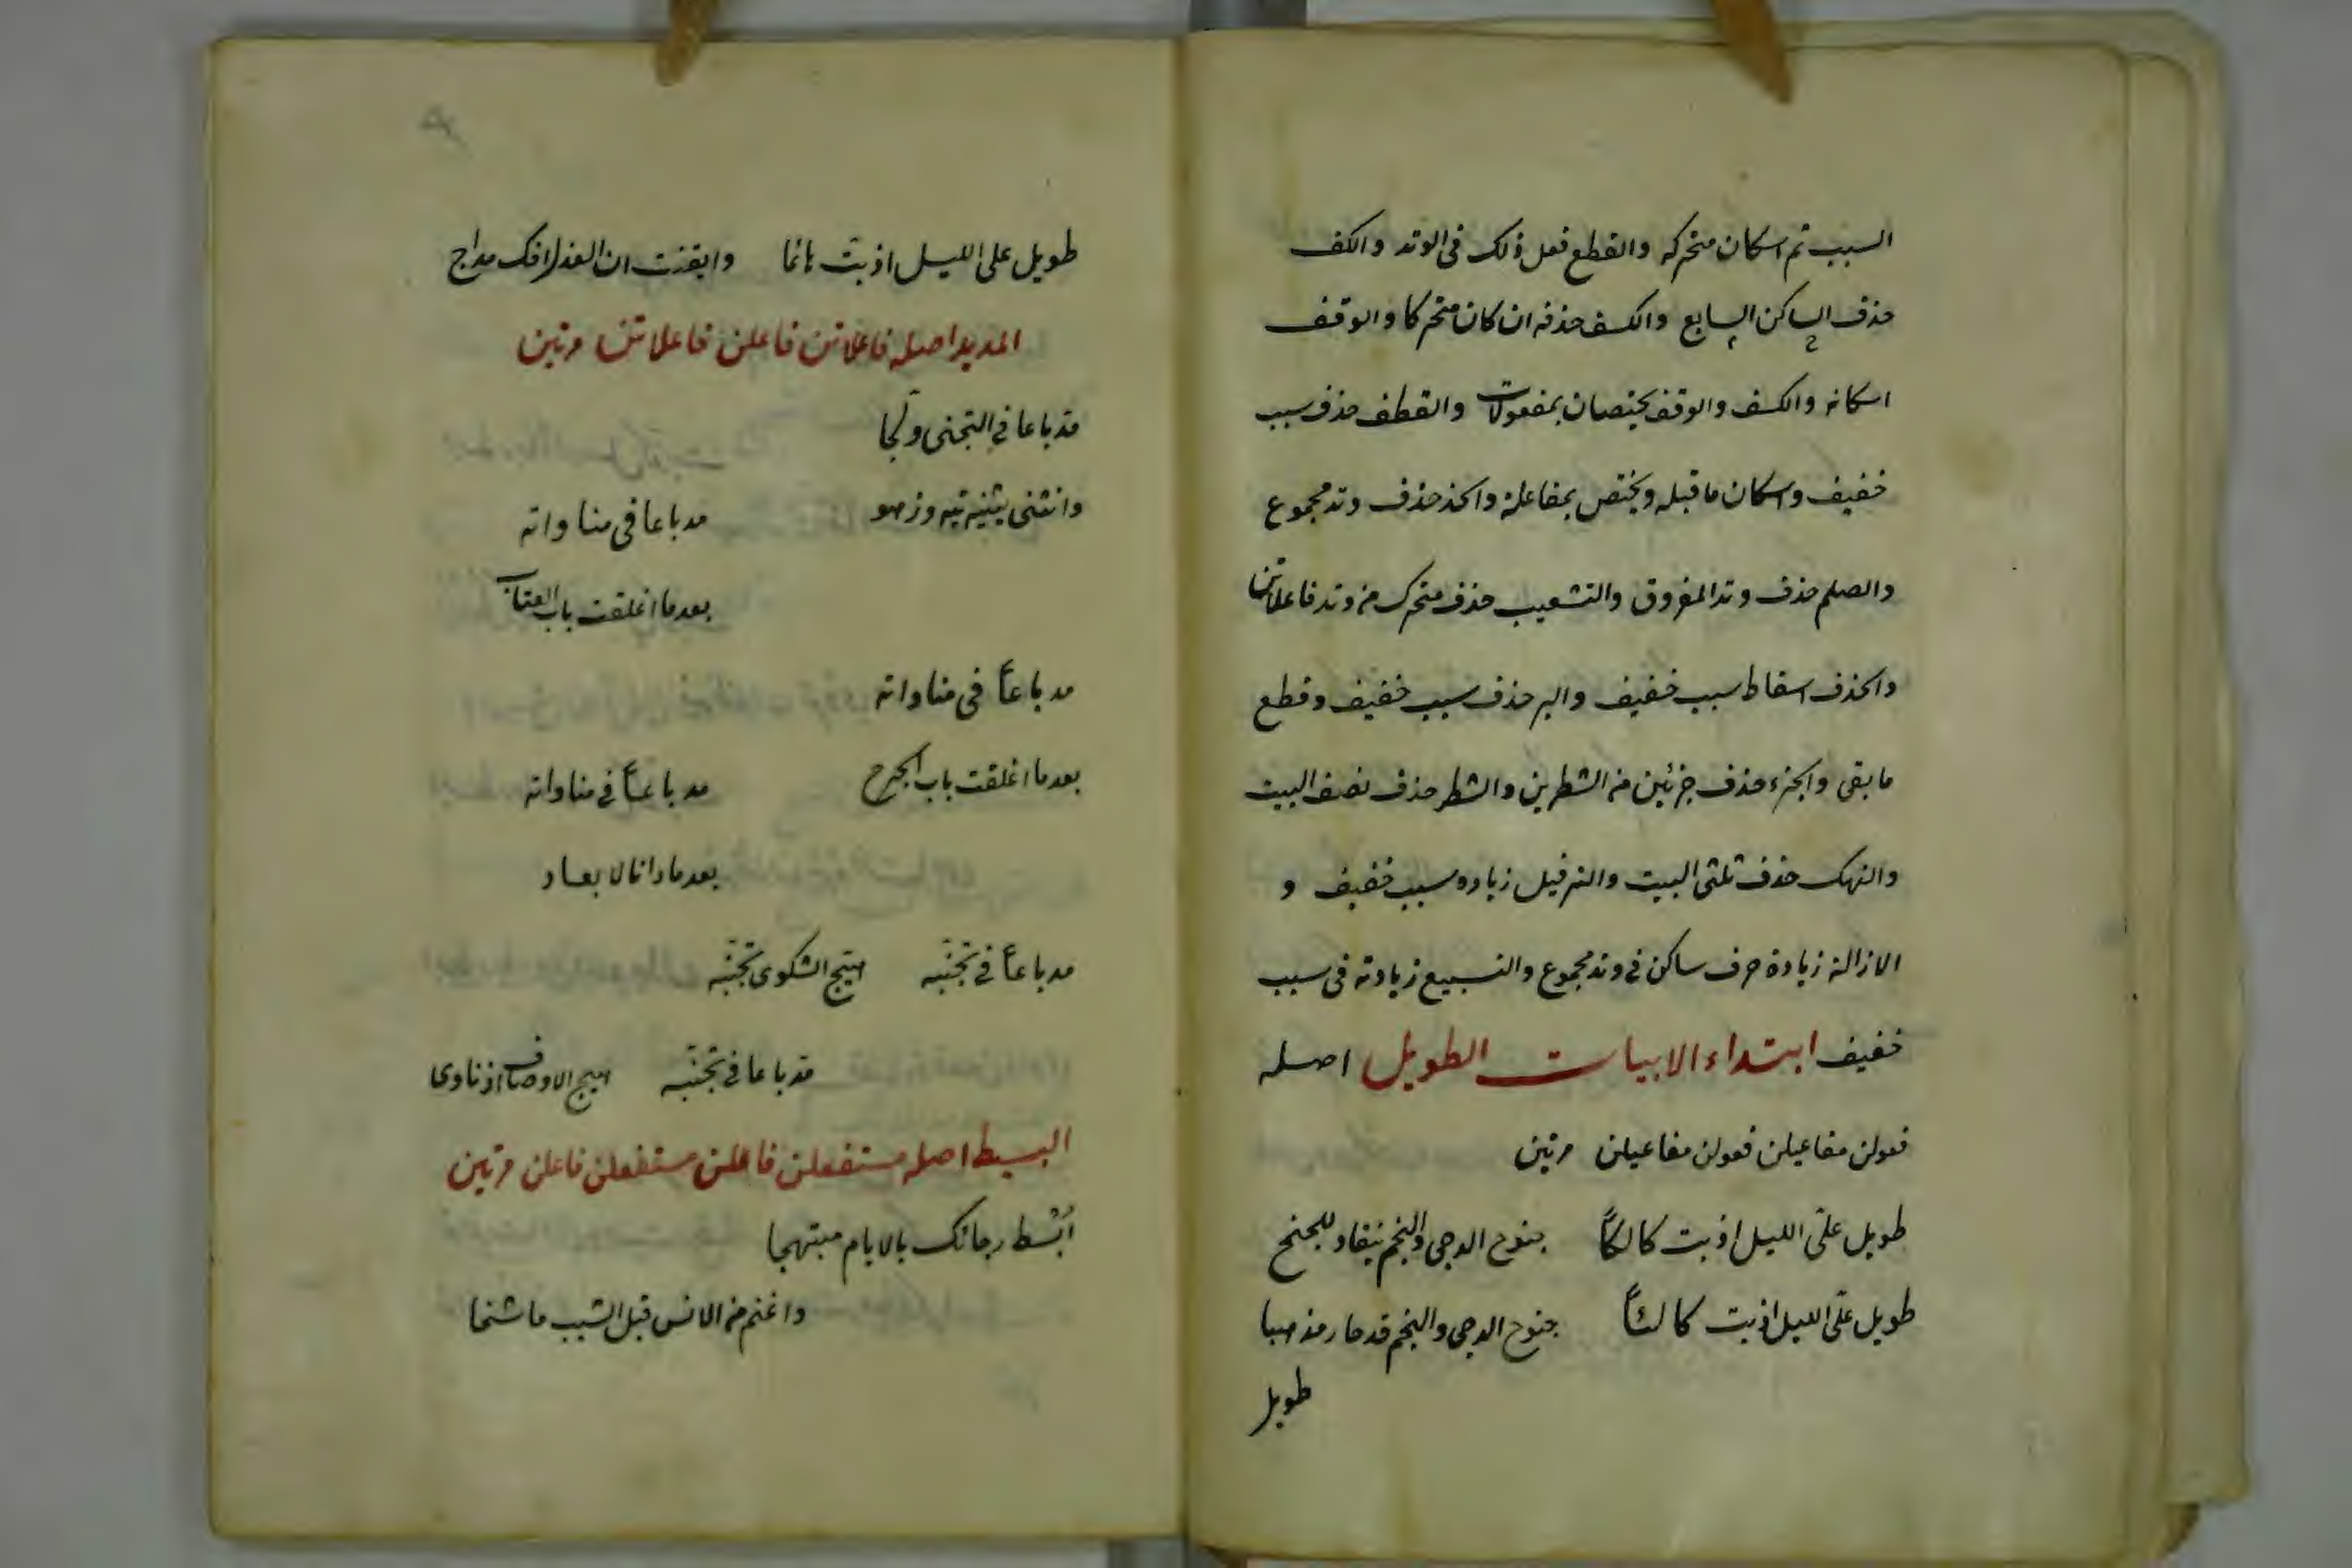 السبب ثم اسكان متحركه والقطع فعل ذلك فى الوتد والكف
حذف الساكن السابع والكسف حذفه ان كان متحركا والوقف
اسكانه والكسف والوقف يختصان بمفعولات والقطف حذف سبب
خفيف واسكان ما قبله ويختص بمفاعلة والحذذ حذف وتد مجموع
والصلم حذف وتد المفروق والتشعيب حذف متحرك من وتد فاعلاتن
والحذف اسقاط سبب خفيف والبر حذف سبب خفيف وقطع
ما بقى والجزء حذف جزئين من الشطرين والشطر حذف نصف البيت
والنهك حذف ثلثى البيت والترفيل زياده سبب خفيف و
الازالة زيادة حرف ساكن فى وتد مجموع والتسبيع زيادته فى سبب
خفيف ابتداء الابيات الطويل اصله
فعولن مفاعيلن فعولن مفاعيلن مرتين
طويل علىّ الليل اذ بت كالئاً جنوح الدجى والنجم ينقاد للجنح
طويل علىّ الليل اذ بت كالئاً جنوح الدجى والنجم قد حار مذهبا
طويل
طويل على الليل اذ بتّ نائما وايقنت ان العذل افك مداج
المديد اصله فاعلاتن فاعلن فاعلاتن مرتين
مد باعا فى التجنى ولجّا
وانثنى يثنيه تيه وزهو مد باعا فى مناواته
بعد ما اغلقت باب العتاب
مد باعاً فى مناواته
بعد ما اغلقت باب الجرح مد باعاً فى مناواته
بعد ما دانا لابعاد
مد باعاً فى تجنّبه اهيج الشكوى تجنّبه
مد باعا فى تجنّبه اهيج الاوصاف اذ ناوى
البسيط اصله مستفعلن فاعلن مستفعلن فاعلن مرتين
اُبْسُط رجائك بالايام مبتهجا
واغنم من الانس قبل الشيب ما سنحا